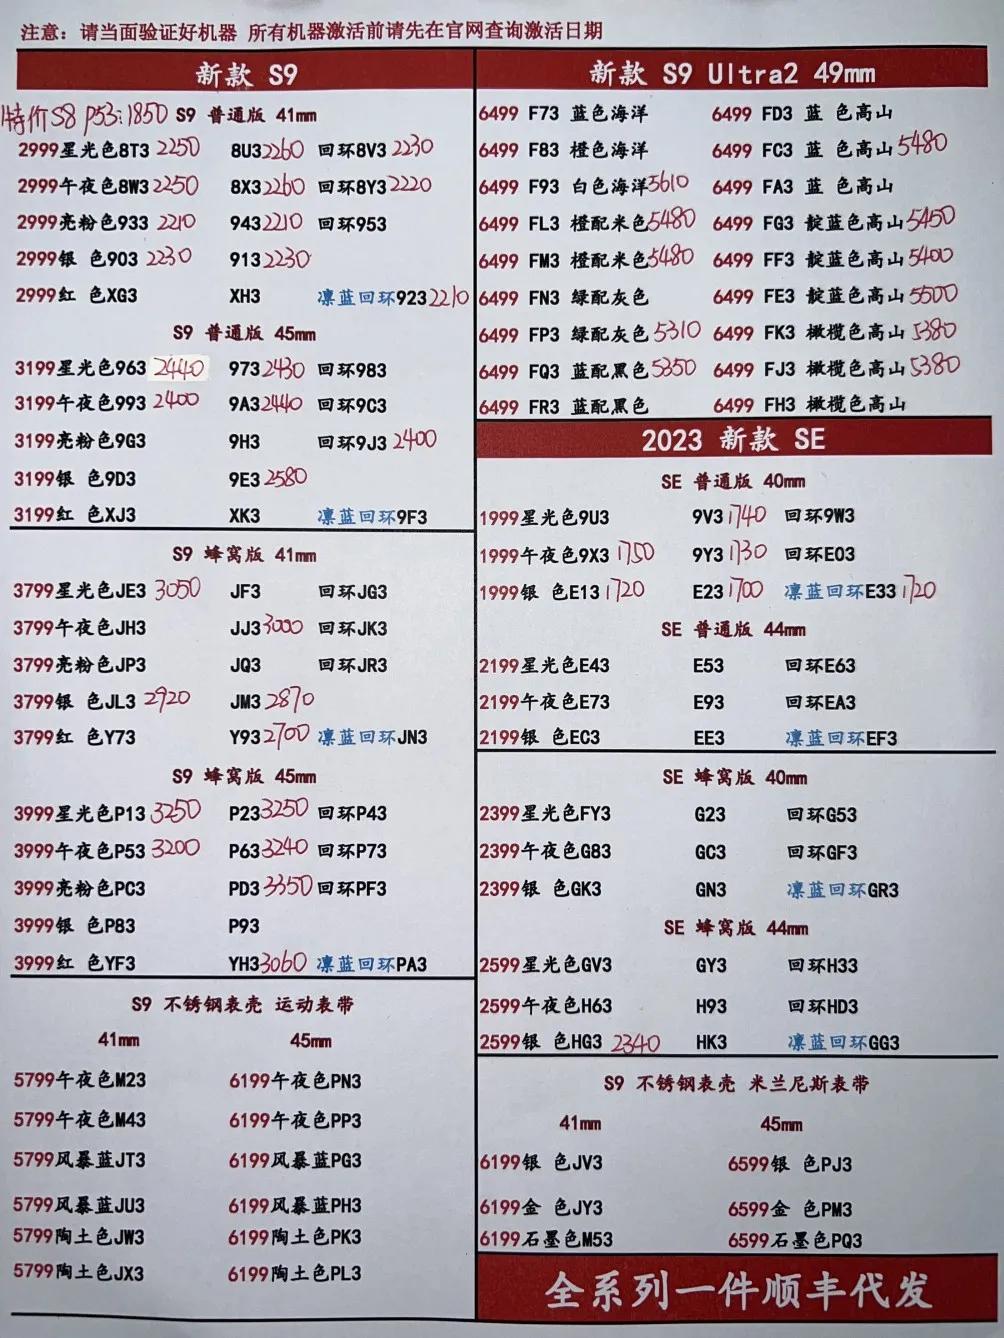 注意：请当面验证好机器 所有机器激活前请先在官网查询激活日期
新款 S9
特价S8 P53:1850 S9 普通版 41mm
2999星光色8T3 2250 8U3 2260 回环8V3 2230
2999午夜色8W3 2250 8X3 2260 回环8Y3 2220
2999亮粉色933 2210 943 2210 回环953
2999银 色903 2230 913 2230
2999红 色XG3 XH3 凛蓝回环923 2210
S9 普通版 45mm
3199星光色963 2440 973 2430 回环983
3199午夜色993 2400 9A3 2440 回环9C3
3199亮粉色9G3 9H3 回环9J3 2400
3199银 色9D3 9E3 2580
3199红 色XJ3 XK3 凛蓝回环9F3
S9 蜂窝版 41mm
3799星光色JE3 3050 JF3 回环JG3
3799午夜色JH3 JJ3 3000 回环JK3
3799亮粉色JP3 JQ3 回环JR3
3799银 色JL3 2920 JM3 2870
3799红 色Y73 Y93 2700 凛蓝回环JN3
S9 蜂窝版 45mm
3999星光色P13 3250 P23 3250 回环P43
3999午夜色P53 3200 P63 3240 回环P73
3999亮粉色PC3 PD3 3350 回环PF3
3999银 色P83 P93
3999红 色YF3 YH3 3060 凛蓝回环PA3
S9 不锈钢表壳 运动表带
41mm 45mm
5799午夜色M23 6199午夜色PN3
5799午夜色M43 6199午夜色PP3
5799风暴蓝JT3 6199风暴蓝PG3
5799风暴蓝JU3 6199风暴蓝PH3
5799陶土色JW3 6199陶土色PK3
5799陶土色JX3 6199陶土色PL3
新款 S9 Ultra2 49mm
6499 F73 蓝色海洋 6499 FD3 蓝 色高山
6499 F83 橙色海洋 6499 FC3 蓝 色高山 5480
6499 F93 白色海洋 5610 6499 FA3 蓝 色高山
6499 FL3 橙配米色 5480 6499 FG3 靛蓝色高山 5450
6499 FM3 橙配米色 5480 6499 FF3 靛蓝色高山 5400
6499 FN3 绿配灰色 6499 FE3 靛蓝色高山 5500
6499 FP3 绿配灰色 5310 6499 FK3 橄榄色高山 5380
6499 FQ3 蓝配黑色 5350 6499 FJ3 橄榄色高山 5380
6499 FR3 蓝配黑色 6499 FH3 橄榄色高山
2023 新款 SE
SE 普通版 40mm
1999星光色9U3 9V3 1740 回环9W3
1999午夜色9X3 1750 9Y3 1730 回环E03
1999银 色E13 1720 E23 1700 凛蓝回环E33 1720
SE 普通版 44mm
2199星光色E43 E53 回环E63
2199午夜色E73 E93 回环EA3
2199银 色EC3 EE3 凛蓝回环EF3
SE 蜂窝版 40mm
2399星光色FY3 G23 回环G53
2399午夜色G83 GC3 回环GF3
2399银 色GK3 GN3 凛蓝回环GR3
SE 蜂窝版 44mm
2599星光色GV3 GY3 回环H33
2599午夜色H63 H93 回环HD3
2599银 色HG3 2340 HK3 凛蓝回环GG3
S9 不锈钢表壳 米兰尼斯表带
41mm 45mm
6199银 色JV3 6599银 色PJ3
6199金 色JY3 6599金 色PM3
6199石墨色M53 6599石墨色PQ3
全系列一件顺丰代发